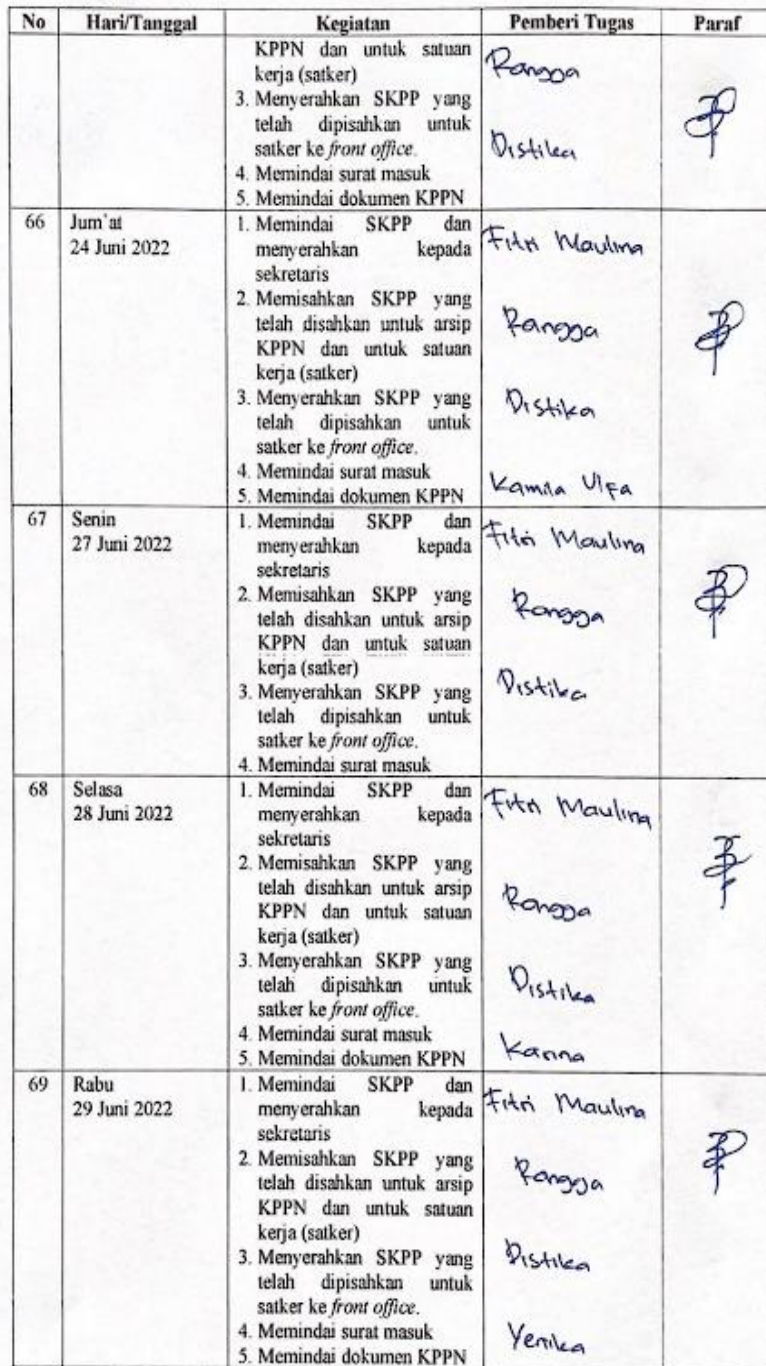 No Hari/Tanggal Kegiatan Pemberi Tugas Paraf
KPPN dan untuk satuan
kerja (satker)
Rangga
3. Menyerahkan SKPP yang
telah dipisahkan untuk
satker ke front office.
Distika
4. Memindai surat masuk
5. Memindai dokumen KPPN
66 Jum'at
24 Juni 2022
1. Memindai SKPP dan
menyerahkan kepada
sekretaris
Fitri Maulina
2. Memisahkan SKPP yang
telah disahkan untuk arsip
KPPN dan untuk satuan
kerja (satker)
Rangga
3. Menyerahkan SKPP yang
telah dipisahkan untuk
satker ke front office.
Distika
4. Memindai surat masuk
5. Memindai dokumen KPPN
Kamila Ulfa
67 Senin
27 Juni 2022
1. Memindai SKPP dan
menyerahkan kepada
sekretaris
Fitri Maulina
2. Memisahkan SKPP yang
telah disahkan untuk arsip
KPPN dan untuk satuan
kerja (satker)
Rangga
3. Menyerahkan SKPP yang
telah dipisahkan untuk
satker ke front office.
Distika
4. Memindai surat masuk
68 Selasa
28 Juni 2022
1. Memindai SKPP dan
menyerahkan kepada
sekretaris
Fitri Maulina
2. Memisahkan SKPP yang
telah disahkan untuk arsip
KPPN dan untuk satuan
kerja (satker)
Rangga
3. Menyerahkan SKPP yang
telah dipisahkan untuk
satker ke front office.
Distika
4. Memindai surat masuk
5. Memindai dokumen KPPN
69 Rabu
29 Juni 2022
1. Memindai SKPP dan
menyerahkan kepada
sekretaris
Fitri Maulina
2. Memisahkan SKPP yang
telah disahkan untuk arsip
KPPN dan untuk satuan
kerja (satker)
Rangga
3. Menyerahkan SKPP yang
telah dipisahkan untuk
satker ke front office.
Distika
4. Memindai surat masuk
5. Memindai dokumen KPPN
Yenika